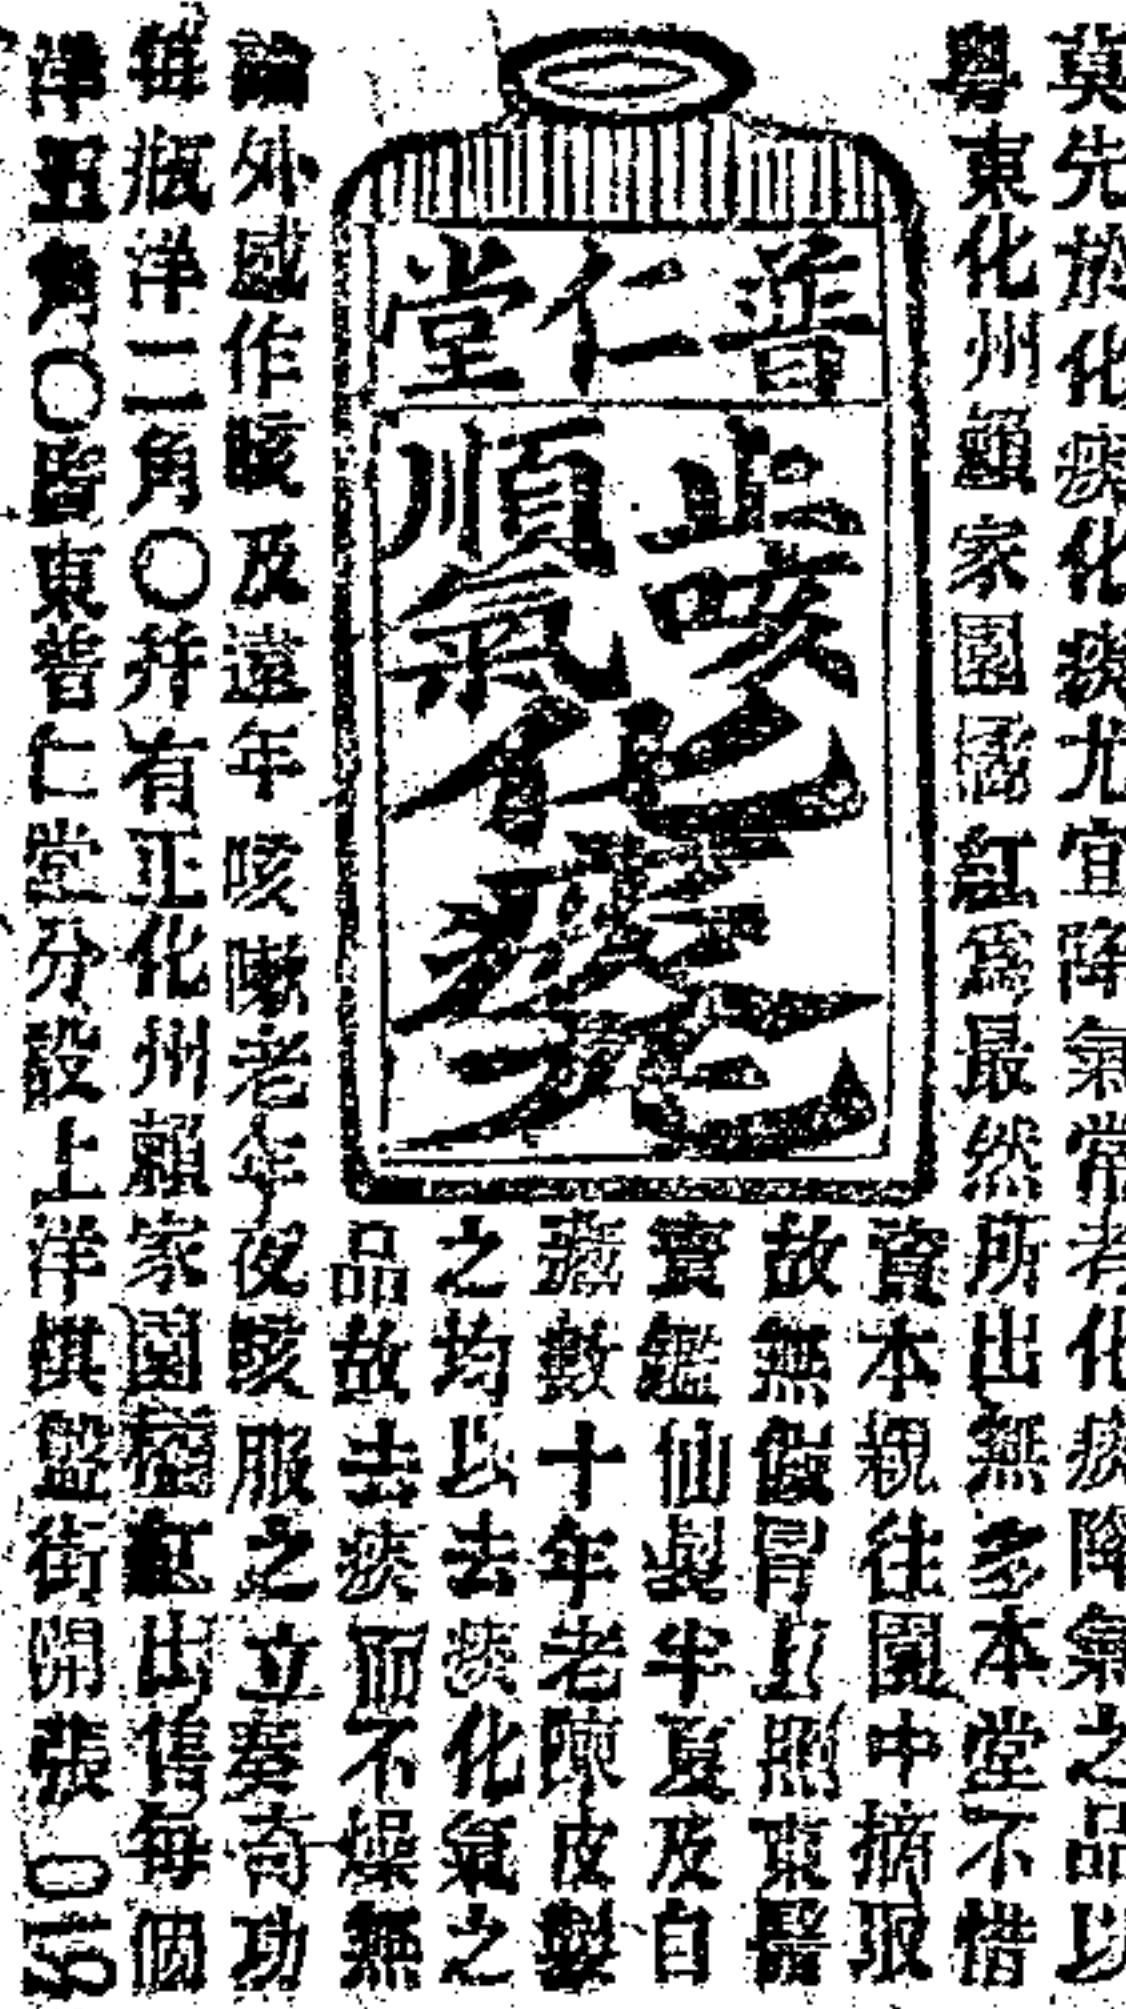 莫先於化痰化痰尤宜降氣常者化痰降氣之品以
粤東化州賴家園橘紅為最然所出無多本堂不惜
資本親往園中摘取
故無假冒且照東醫
寶鑑仙製半夏及自
藏數十年老陳皮製
之均以去痰化氣之
品故去痰而不燥無
普仁堂
止咳
順氣
化痰丸
論外感作咳及遠年咳嗽老年夜咳服之立奏奇功
每瓶洋二角〇幷有正化州賴家園橘紅出售每個
洋五角〇粤東普仁堂分設上洋棋盤街開張